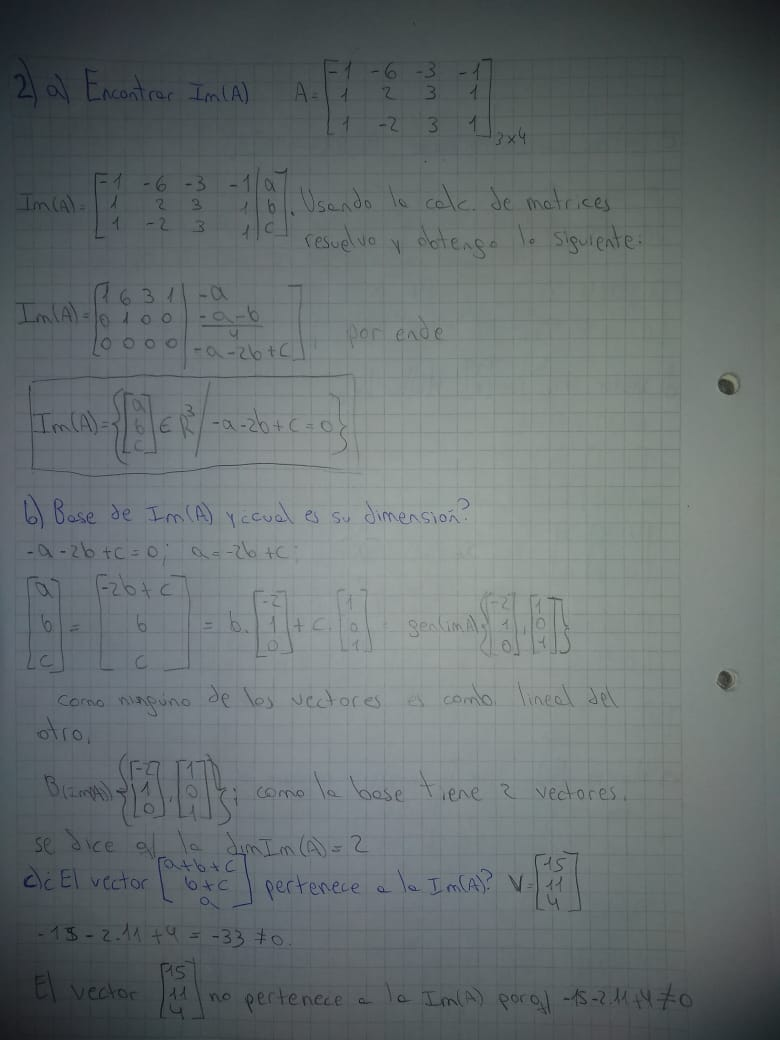 2) a) Encontrar Im(A) A = [-1 -6 -3 -1
1 2 3 1
1 -2 3 1] 3x4
Im(A) = [-1 -6 -3 -1 | a
1 2 3 1 | b
1 -2 3 1 | c]. Usando la calc. de matrices
resuelvo y obtengo lo siguiente:
Im(A) = [1 6 3 1 | -a
0 1 0 0 | (-a-b)/4
0 0 0 0 | -a-2b+c] por ende
Im(A) = {[a b c] ∈ R³ / -a-2b+c=0}
b) Base de Im(A) y ¿cual es su dimensión?
-a-2b+c=0; a=-2b+c;
[a b c] = [-2b+c b c] = b.[-2 1 0] + c.[1 0 1] = gen(ImA){[-2 1 0], [1 0 1]}
como ninguno de los vectores es comb. lineal del
otro,
B(ImA) {[-2 1 0], [1 0 1]}; como la base tiene 2 vectores.
se dice q/ la dimIm(A) = 2
c) ¿El vector [a+b+c b+c a] pertenece a la Im(A)? V = [15 11 4]
-15-2.11+4 = -33 ≠ 0.
El vector [15 11 4] no pertenece a la Im(A) porq/ -15-2.11+4 ≠ 0